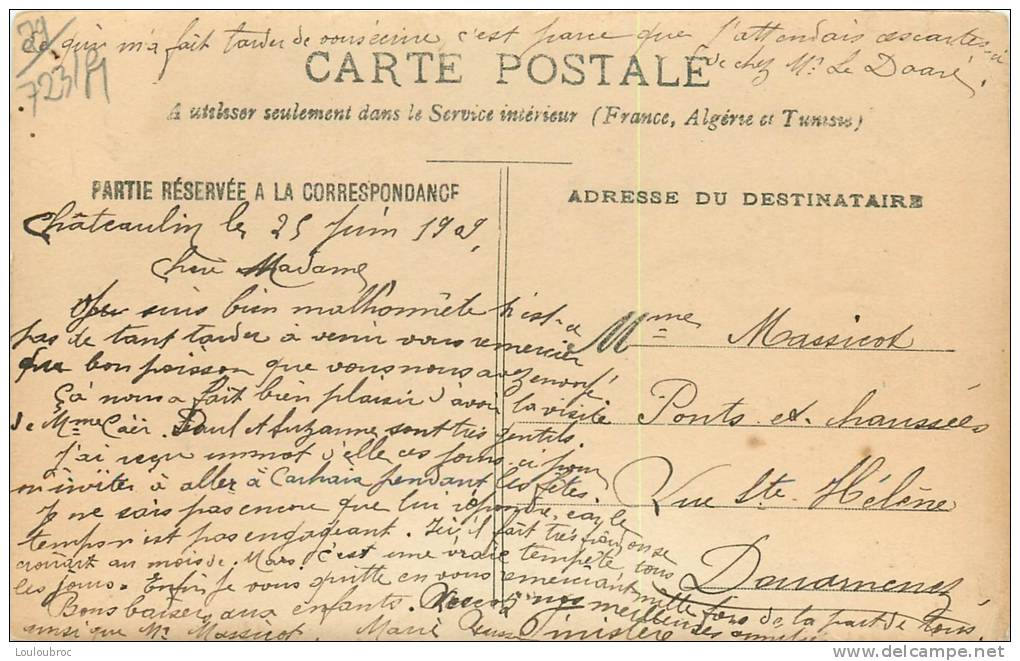 29
723/M
ce qui m'a fait tarder de vous écrire, c'est parce que j'attendais ces cartes-ci
de chez Mr Le Doaré.
CARTE POSTALE
A utiliser seulement dans le Service intérieur (France, Algérie et Tunisie)
PARTIE RÉSERVÉE A LA CORRESPONDANCE
Châteaulin le 25 Juin 1909.
Chère Madame
suis bien malhonnête n'est-ce
pas de tant tarder à venir vous remercier
du bon poisson que vous nous avez envoyé
Çà nous a fait bien plaisir d'avoir la visite
de Mme Caër. Paul et Suzanne sont très gentils.
J'ai reçu un mot d'elle ces jours-ci pour
m'inviter à aller à Carhaix pendant les fêtes.
Je ne sais pas encore que lui répondre, car le
temps n'est pas engageant. Ici il fait très froid on se
croirait au mois de Mars. C'est une vraie tempête tous
les jours. Enfin je vous quitte en vous remerciant mille fois de la part de tous.
Bons baisers aux enfants. Recevez nos meilleures amitiés
ainsi que Mr Massicot. Marie
ADRESSE DU DESTINATAIRE
Mme Massicot
Ponts et chaussées
Rue Ste Hélène
Douarnenez
Finistère
© Louloubroc
http://www.delcampe.net